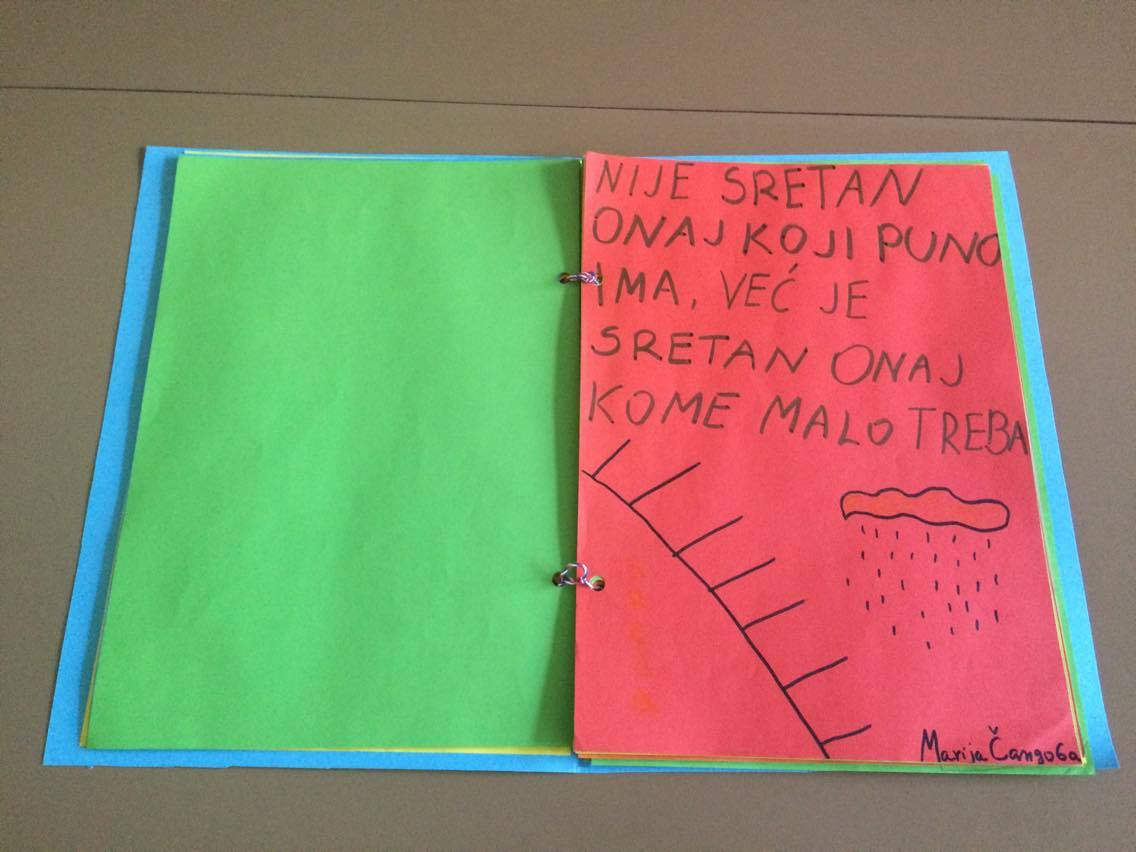 NIJE SRETAN
ONAJ KOJI PUNO
IMA, VEĆ JE
SRETAN ONAJ
KOME MALO TREBA
Marija Čangoba